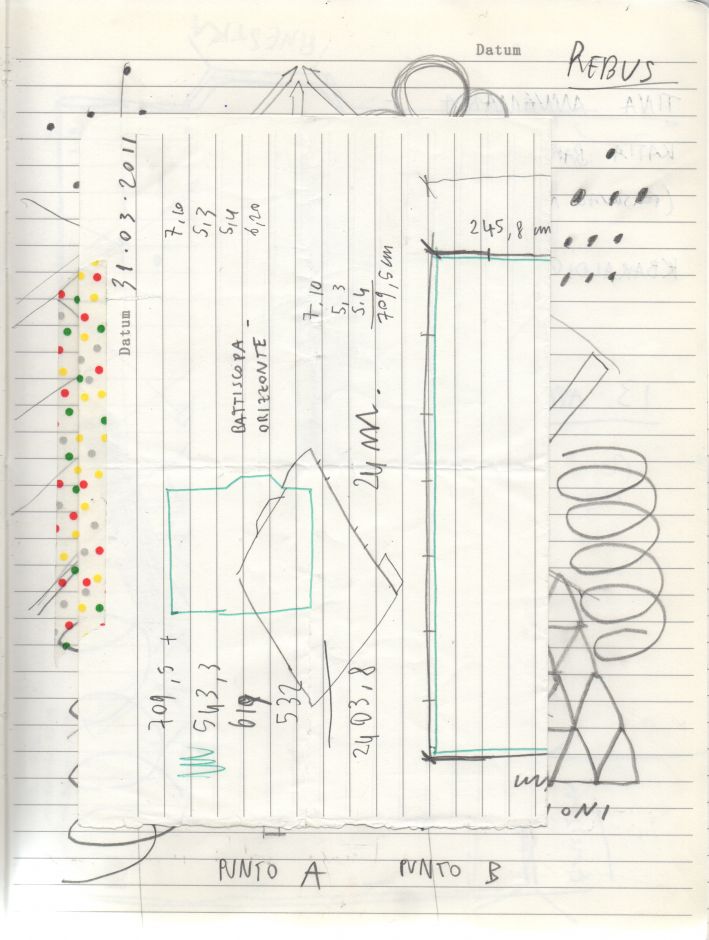 Datum
REBUS
Datum 31.03.2011
7,10
5,3
5,4
6,20
BATTISCOPA -
ORIZZONTE -
7,10
5,3
5,4
709,5 cm
24 m.
245,8 cm
709,5 +
543,3
619
532
2403,8
IONI
PUNTO A
PUNTO B